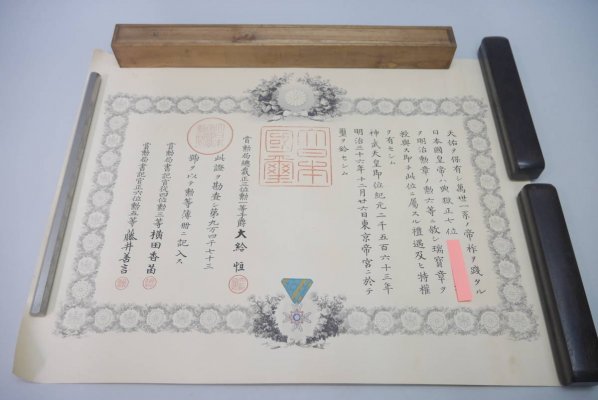 天佑ヲ保有シ萬世一系ノ帝祚ヲ踐タル
日本國皇帝ハ典獄正七位
ヲ明治勲章ノ勲六等ニ敘シ瑞寶章ヲ
授與ス即チ此位ニ屬スル禮遇及ヒ特權
ヲ有セシム
神武天皇即位紀元二千五百六十三年
明治三十六年十二月廿六日東京帝宮ニ於テ
璽ヲ鈐セシム
大日本國璽
賞勲局總裁正三位勲一等子爵大給恒
此證ヲ勘査シ第九万四千七十三
號ヲ以テ勲等簿冊ニ記入ス
賞勲局書記官從四位勲三等横田香苗
賞勲局書記官正六位勲五等藤井善言